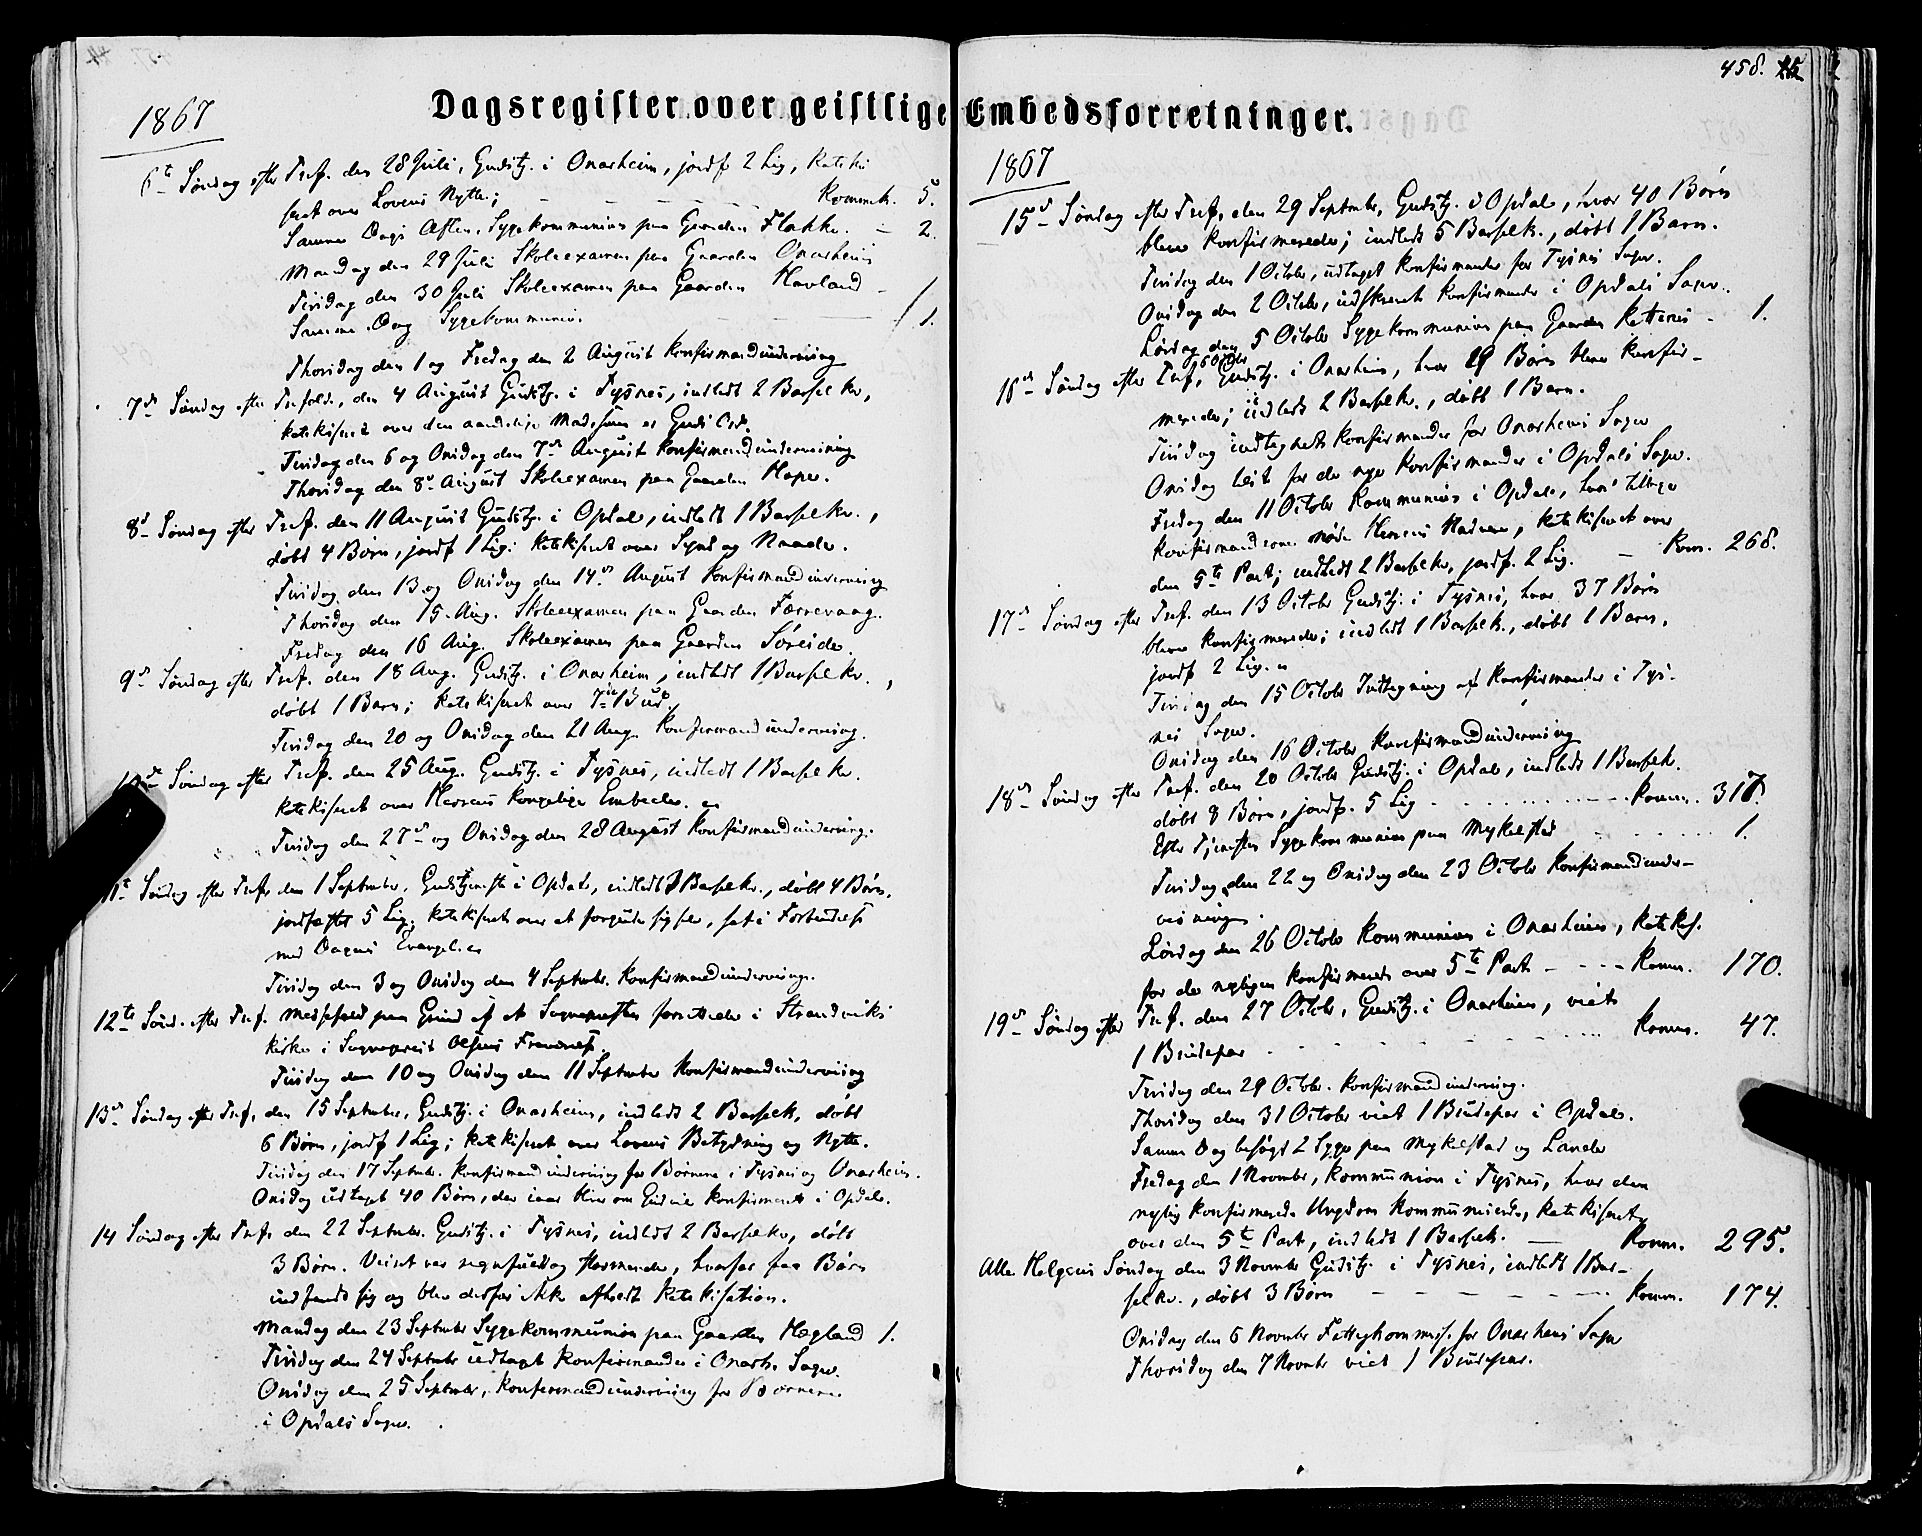 458.
Dagsregister over geistlige Embedsforretninger.
1867
6te Søndag efter Tref. den 28 Juli, Gudstj. i Onarheim, jordf 2 Lig, kateki
seret over Lovens Nytte; Kommk. 5.
Samme Dags Aften Sygekommunion paa Gaarden Flakke. 2.
Mandag den 29 Juli Skoleexamen paa Gaarden Onarheim
Tirsdag den 30 Juli Skoleexamen paa Gaarden Havland
Samme Dag Sygekommunion. 1.
Thorsdag den 1 og Fredag den 2 August Konfirmandundervisning
7de Søndag efter Trefold., den 4 August Gudstj. i Tysnes, indledt 2 Barselkv.,
katekiseret over den aandelige Madsom er Guds Ord.
Tirsdag den 6 og Onsdag den 7de August Konfirmandundervisning
Thorsdag den 8de August Skoleexamen paa Gaarden Hope.
8de Søndag efter Tref. den 11 August Gudstj. i Opdal, indledt 1 Barselkv.,
døbt 4 Børn, jordf 1 Lig; katekiseret over Synd og Naade.
Tirsdag den 13 og Onsdag den 14de August Konfirmandundervisning
Thorsdag den 15. Aug. Skoleexamen paa Gaarden Færrevaag.
Fredag den 16 Aug. Skoleexamen paa Gaarden Søreide.
9de Søndag efter Tref. den 18 Aug. Gudstj. i Onarheim, indledt 1 Barselkv.,
døbt 1 Barn; katekiseret over 7de Bud.
Tirsdag den 20 og Onsdag den 21 Aug. Konfirmandundervisning.
10de Søndag efter Tref. den 25 Aug. Gudstj. i Tysnes, indledt 1 Barselkv.
katekiseret over Herrens kongelige Embede.
Tirsdag den 27de og Onsdag den 28 August Konfirmandundervisning.
11te Søndag efter Tref. den 1 September, Gudstjeneste i Opdal, indledt 3 Barselkv., døbt 4 Børn.
jordfæstet 5 Lig, katekiseret over at forgude sig selv, sat i Forbindelse
med Dagens Evangel.
Tirsdag den 3 og Onsdag den 4 Septembr. Konfirmandundervisning.
12te Sønd. efter Tref. Messefald paa Grund af at Sognepræsten forrettede i Strandviks
Kirke i Sognepræst Fravær.
Tirsdag den 10 og Onsdag den 11 September Konfirmandundervisning
13de Søndag efter Tref. den 15 September, Gudstj. i Onarheim, indledt 2 Barselk, døbt
6 Børn, jordf 1 Lig; katekiseret over Lovens Betydning og Nytte.
Tirsdag den 17 Septembr. Konfirmandundervisning for Børnene i Tysnes og Onarheim.
Onsdag udtaget 40 Børn, der iaar blive om Gud vil konfirmeret i Opdal.
14 Søndag efter Tref. den 22 Septembr. Gudstj. i Tysnes, indledt 2 Barselkv, døbt
3 Børn. Veiret var regnfuldt og stormende, hvorfor faa Børn
indfandt sig og blev derfor ikke afholdt Katekisation.
Mandag den 23 September Sygekommunion paa Gaarden Hegland 1.
Tirsdag den 24 Septembr udtaget Konfirmander i Onarh. Sogn.
Onsdag den 25 September, Konfirmandundervisning for Børnene
i Opdals Sogn.
1867
15de Søndag efter Tref. den 29 Septembr, Gudstj. i Opdal, hvor 40 Børn
bleve konfirmerede; indledt 5 Barselk., døbt 1 Barn.
Tirsdag den 1 October, udtaget Konfirmander for Tysnes Sogn.
Onsdag den 2 October, indskrevet Konfirmander i Opdals Sogn.
Lørdag den 5 October Sygekommunion paa Gaarden 1.
16de Søndag efter Tref. 6 Octobr Gudstj. i Onarheim, hvor 29 Børn bleve konfir-
merede; indledt 2 Barselkv., døbt 1 Barn.
Tirsdag indtegnet Konfirmander for Onarheims Sogn
Onsdag læst for de nye Konfirmander i Opdals Sogn.
Fredag den 11 October Kommunion i Opdal, hvor tillige
Konfirmanderne nøde Herrens Nadvere, katekiseret over
den 5te Part; indledt 2 Barselkv, jordf. 2 Lig. Kom. 268.
17de Søndag efter Tref. den 13 October Gudstj. i Tysnes, hvor 37 Børn
bleve konfirmerede; indledt 1 Barselk., døbt 1 Barn,
jordf 2 Lig.
Tirsdag den 15 October Indtegning af Konfirmander i Tys-
nes Sogn.
Onsdag den 16 October Konfirmandundervisning
18de Søndag efter Tref. den 20 Octobr Gudstj. i Opdal, indledt 1 Barselk.
døbt 8 Børn, jordf. 5 Lig Komm. 317.
Efter Tjenesten Sygekommunion paa Mykelstad 1.
Tirsdag den 22 og Onsdag den 23 October Konfirmandunder-
visningen.
Lørdag den 26 October Kommunion i Onarheim, katekis.
for de nyligen konfirmerede over 5te Part Komm. 170.
19de Søndag efter Tref. den 27 Octobr, Gudstj. i Onarheim, viet
1 Brudepar Komm. 47.
Tirsdag den 29 Octobr. Konfirmandundervisning.
Thorsdag den 31 October viet 1 Brudepar i Opdal.
Samme Dag besøgt 2 Syge paa Mykelstad og Lande
Fredag den 1 November, Kommunion i Tysnes, hvor den
nylig konfirmerede Ungdom kommunicerede, katekiseret
over den 5te Part, indledt 1 Barselk. Komm. 295.
Alle Helgens Søndag den 3 November Gudstj. i Tysnes, indledt 1 Bar-
selkv., døbt 3 Børn Komm. 174.
Onsdag den 6 November Fattigkommiss. for Onarheims Sogn
Thorsdag den 7 Novembr viet 1 Brudepar.